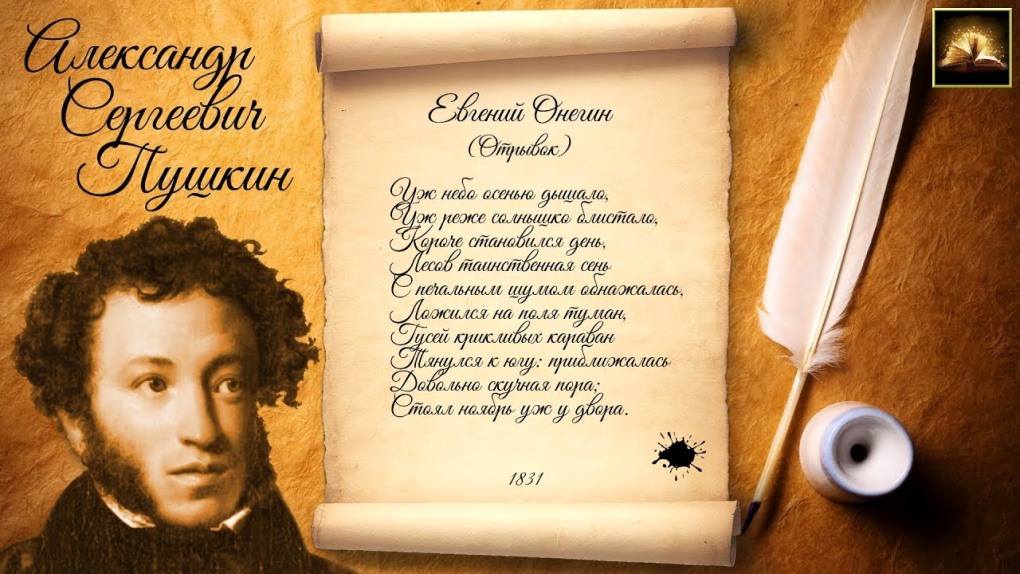 Александр
Сергеевич
Пушкин
Евгений Онегин
(Отрывок)
Уж небо осенью дышало,
Уж реже солнышко блистало,
Короче становился день,
Лесов таинственная сень
С печальным шумом обнажалась,
Ложился на поля туман,
Гусей крикливых караван
Тянулся к югу: приближалась
Довольно скучная пора;
Стоял ноябрь уж у двора.
1831